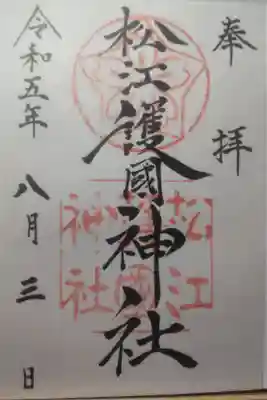 奉拝
松江護國神社
松江
護國
神社
令和五年八月三日